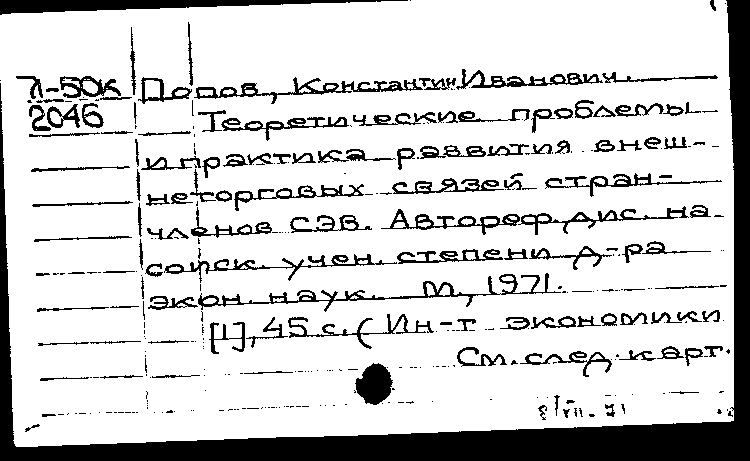 Л-50к Попов, Константин Иванович.
2046 Теоретические проблемы
и практика развития внеш-
неторговых связей стран-
членов СЭВ. Автореф. дис. на
соиск. учен. степени д-ра
экон. наук. М., 1971.
[1], 45 с. (Ин-т экономики
См. след. карт.
8/VII-71